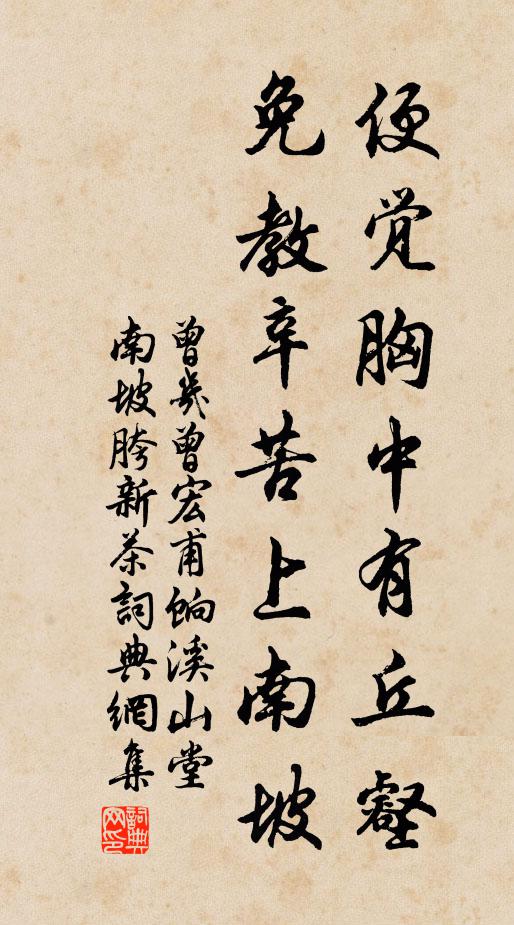 便觉胸中有丘壑
免教辛苦上南坡
曾幾曾宏甫餉溪山堂
南坡胯新茶詞典網集
詞典
网印